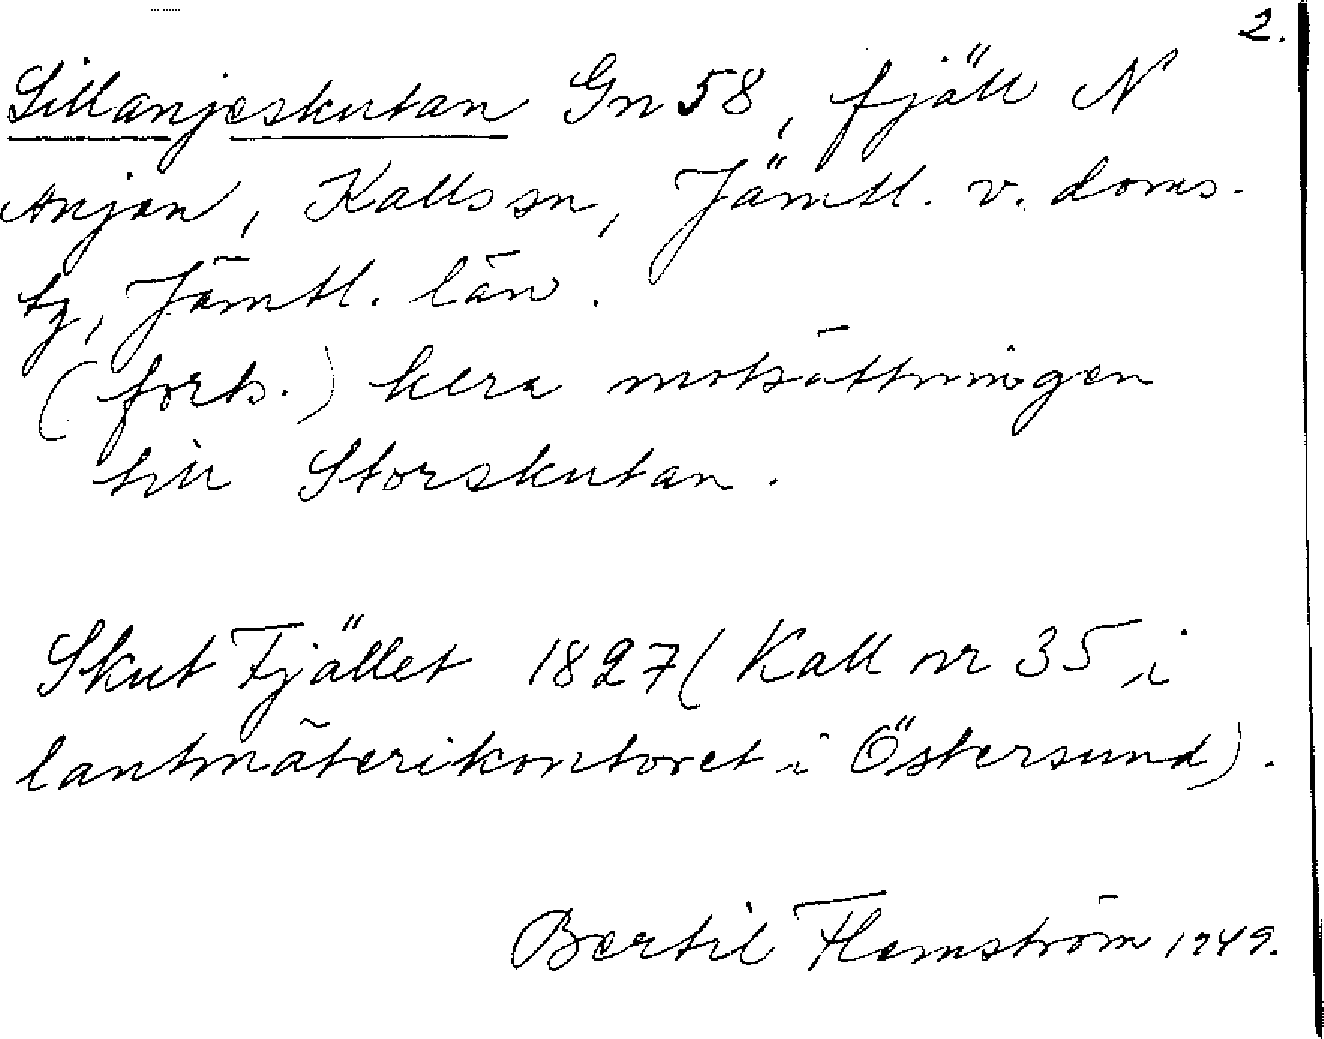 2.
Lillanjeskutan Gn 58, fjäll N
Anjan, Kalls sn, Jämtl. v. doms-
tg, Jämtl. län.
(forts.) hera motsättningen
till Storskutan.
Skut Fjället 1827 (Kall nr 35 i
lantmäterikontoret i Östersund).
Bertil Flemström 1949.